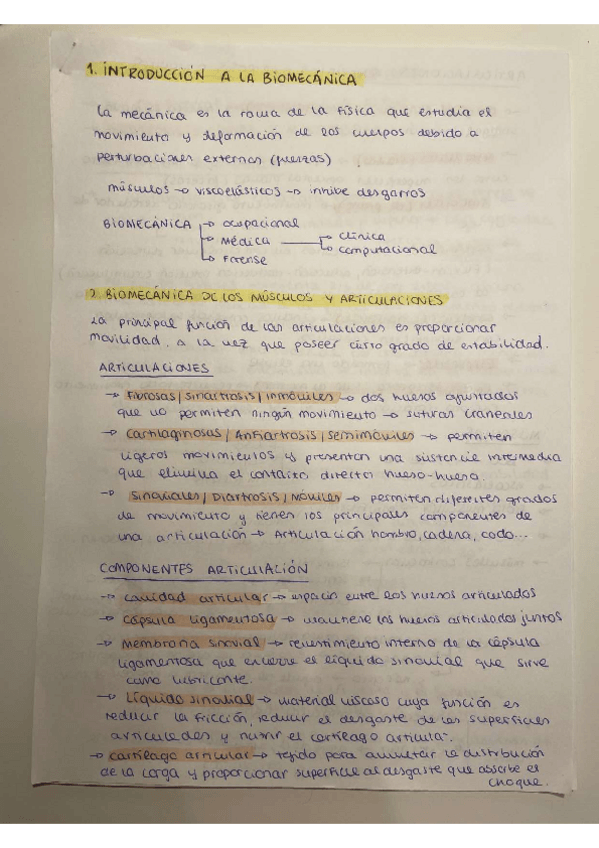 1. INTRODUCCIÓN A LA BIOMECÁNICA
La mecánica es la rama de la física que estudia el
movimiento y deformación de los cuerpos debido a
perturbaciones externas (fuerzas)
músculos → viscoelásticos → inhibe desgarros
BIOMECÁNICA → ocupacional
→ Médica → Clínica
→ computacional
→ Forense
2. BIOMECÁNICA DE LOS MÚSCULOS Y ARTICULACIONES
La principal función de las articulaciones es proporcionar
movilidad, a la vez que poseer cierto grado de estabilidad.
ARTICULACIONES
→ Fibrosas / Sinartrosis / Inmóviles → dos huesos ajustados
que no permiten ningún movimiento → suturas craneales
→ Cartilaginosas / Anfiartrosis / Semimóviles → permiten
ligeros movimientos y presentan una sustancia intermedia
que elimina el contacto directo hueso-hueso.
→ Sinoviales / Diartrosis / Móviles → permiten diferentes grados
de movimiento y tienen los principales componentes de
una articulación → Articulación hombro, cadera, codo...
COMPONENTES ARTICULACIÓN
→ cavidad articular → espacio entre los huesos articulados
→ cápsula ligamentosa → mantiene los huesos articulados juntos
→ Membrana sinovial → revestimiento interno de la cápsula
ligamentosa que encierra el líquido sinovial que sirve
como lubricante.
→ Líquido sinovial → material viscoso cuya función es
reducir la fricción, reducir el desgaste de las superficies
articulados y nutrir el cartílago articular.
→ cartílago articular → tejido para aumentar la distribución
de la carga y proporcionar superficie al desgaste que absorbe el
choque.